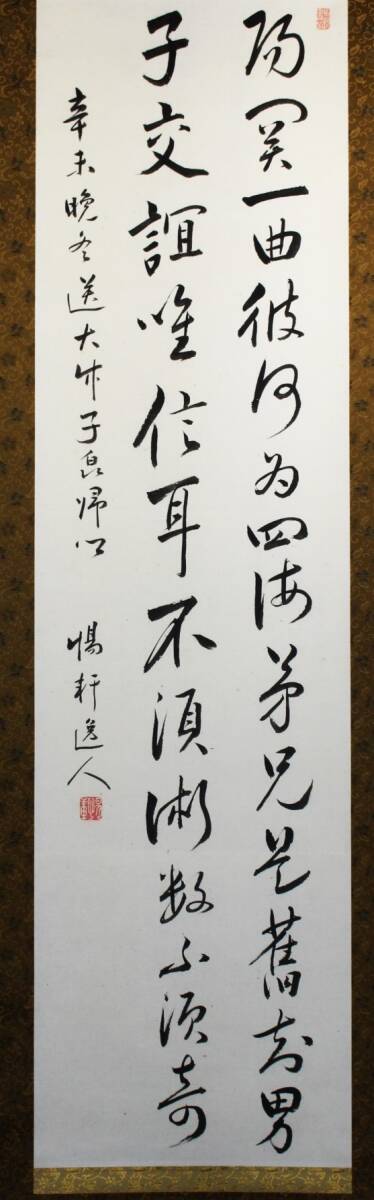 陽関一曲彼何為四海弟兄是舊知男
子交誼唯信耳不須術数不須奇
辛未晩冬送大作子良帰公 惕軒逸人